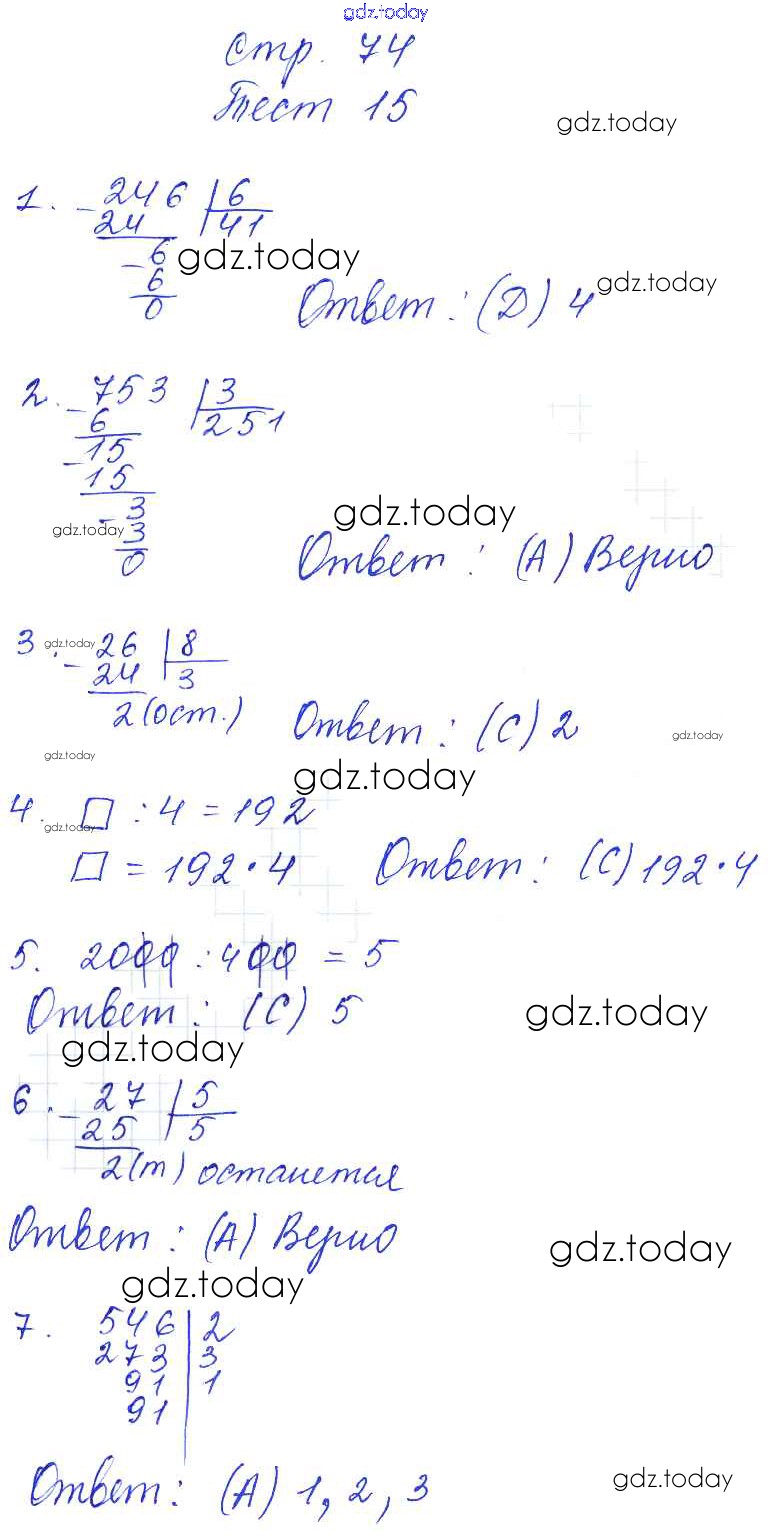 gdz.today
Стр. 74
Тест 15
gdz.today
1. - 246 | 6
24 | 41
- 6
gdz.today
6
0
Ответ: (D) 4
gdz.today
2. - 753 | 3
6 | 251
- 15
15
- 3
gdz.today
gdz.today
3
0
Ответ: (A) Верно
3. gdz.today - 26 | 8
24 | 3
2 (ост.)
Ответ: (C) 2
gdz.today
gdz.today
gdz.today
4. □ : 4 = 192
gdz.today
□ = 192 · 4 Ответ: (C) 192 · 4
5. 2000 : 400 = 5
Ответ: (C) 5
gdz.today
gdz.today
6. - 27 | 5
25 | 5
2 (т) останется
Ответ: (A) Верно
gdz.today
gdz.today
7. 546 | 2
273 | 3
91 | 1
91
Ответ: (A) 1, 2, 3
gdz.today